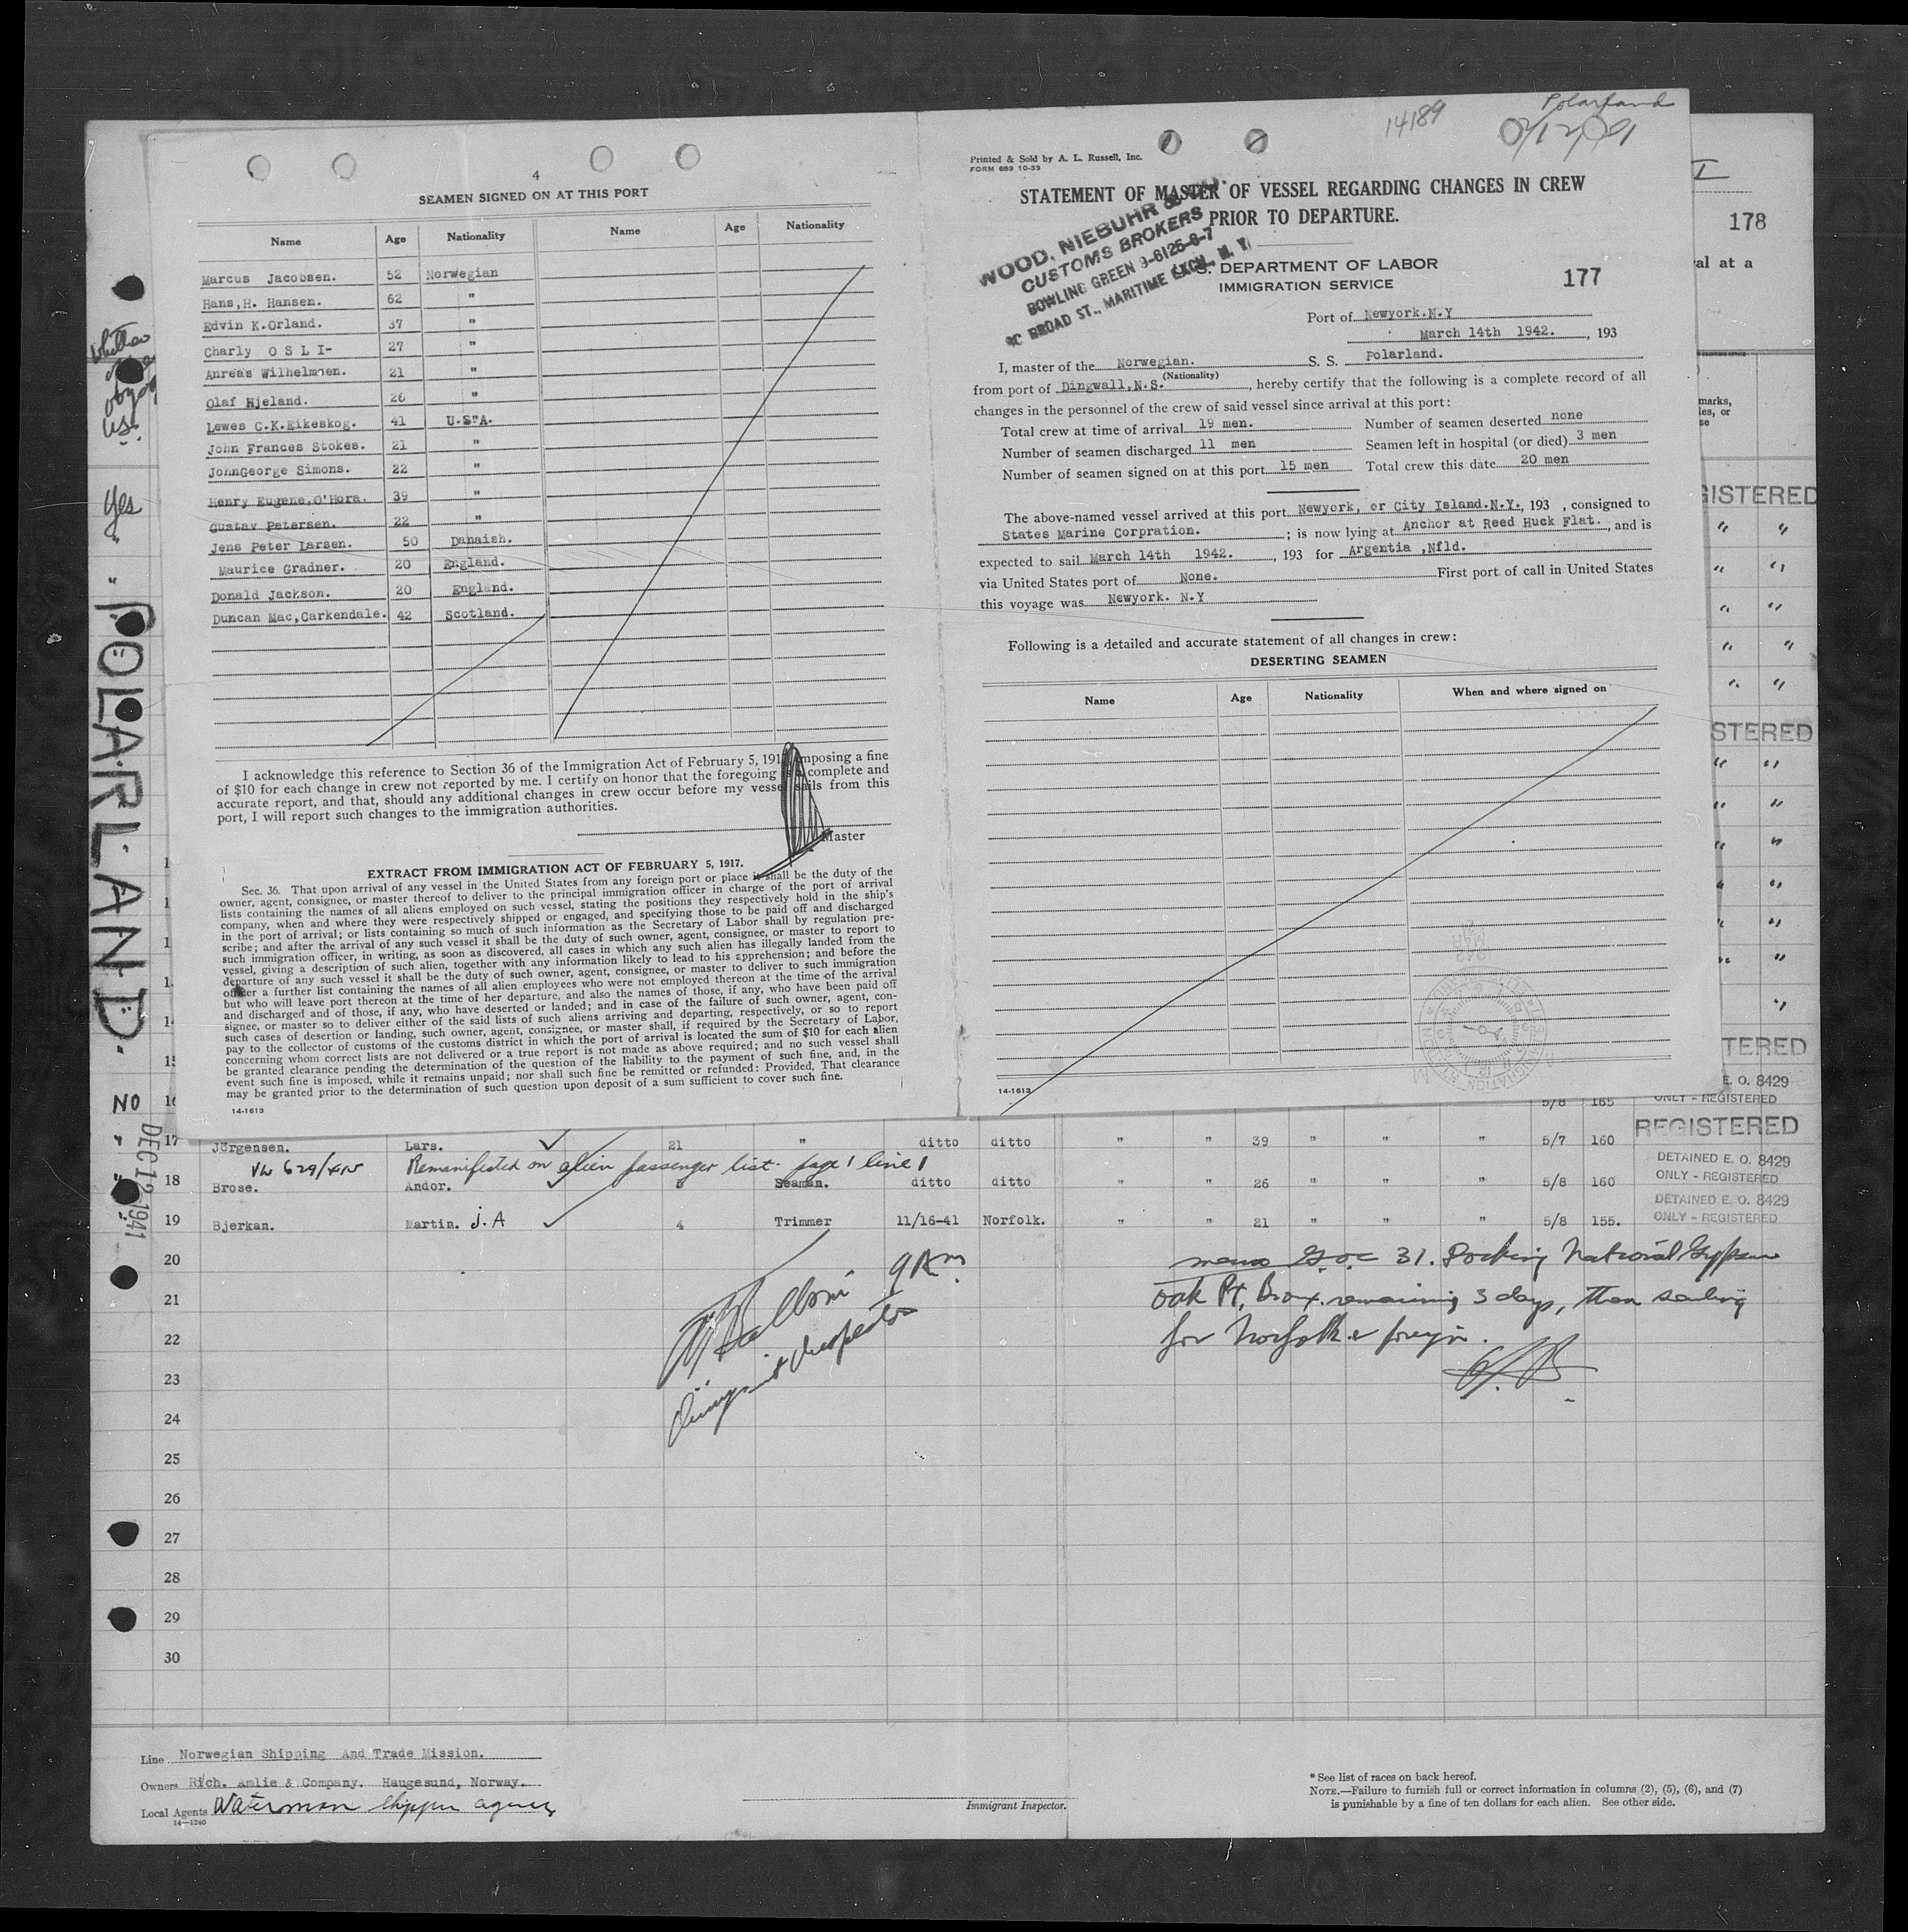 4
SEAMEN SIGNED ON AT THIS PORT
Name Age Nationality Name Age Nationality
Marcus Jacobsen. 52 Norwegian
Hans,H. Hansen. 62 "
Edvin K.Orland. 37 "
Charly O S L I- 27 "
Anreas Wilhelmsen. 21 "
Olaf Hjeland. 26 "
Lewes C.K.Eikeskog. 41 U.S"A.
John Frances Stokes. 21 "
JohnGeorge Simons. 22 "
Henry Eugene,O'Hora. 39 "
Gustav Petersen. 22 "
Jens Peter Larsen. 50 Danaish.
Maurice Gradner. 20 England.
Donald Jackson. 20 England.
Duncan Mac,Carkendale. 42 Scotland.
I acknowledge this reference to Section 36 of the Immigration Act of February 5, 191 imposing a fine
of $10 for each change in crew not reported by me. I certify on honor that the foregoing is a complete and
accurate report, and that, should any additional changes in crew occur before my vessel sails from this
port, I will report such changes to the immigration authorities.
Master
EXTRACT FROM IMMIGRATION ACT OF FEBRUARY 5, 1917.
Sec. 36. That upon arrival of any vessel in the United States from any foreign port or place it shall be the duty of the
owner, agent, consignee, or master thereof to deliver to the principal immigration officer in charge of the port of arrival
lists containing the names of all aliens employed on such vessel, stating the positions they respectively hold in the ship's
company, when and where they were respectively shipped or engaged, and specifying those to be paid off and discharged
in the port of arrival; or lists containing so much of such information as the Secretary of Labor shall by regulation pre-
scribe; and after the arrival of any such vessel it shall be the duty of such owner, agent, consignee, or master to report to
such immigration officer, in writing, as soon as discovered, all cases in which any such alien has illegally landed from the
vessel, giving a description of such alien, together with any information likely to lead to his apprehension; and before the
departure of any such vessel it shall be the duty of such owner, agent, consignee, or master to deliver to such immigration
officer a further list containing the names of all alien employees who were not employed thereon at the time of the arrival
but who will leave port thereon at the time of her departure, and also the names of those, if any, who have been paid off
and discharged and of those, if any, who have deserted or landed; and in case of the failure of such owner, agent, con-
signee, or master so to deliver either of the said lists of such aliens arriving and departing, respectively, or so to report
such cases of desertion or landing, such owner, agent, consignee, or master shall, if required by the Secretary of Labor,
pay to the collector of customs of the customs district in which the port of arrival is located the sum of $10 for each alien
concerning whom correct lists are not delivered or a true report is not made as above required; and no such vessel shall
be granted clearance pending the determination of the question of the liability to the payment of such fine, and, in the
event such fine is imposed, while it remains unpaid; nor shall such fine be remitted or refunded: Provided, That clearance
may be granted prior to the determination of such question upon deposit of a sum sufficient to cover such fine.
14-1613
14189
Polarland
Printed & Sold by A. L. Russell, Inc.
FORM 689 10-33
STATEMENT OF MASTER OF VESSEL REGARDING CHANGES IN CREW
PRIOR TO DEPARTURE.
WOOD, NIEBUHR &
CUSTOMS BROKERS
BOWLING GREEN 9-6125-6-7
BROAD ST., MARITIME EXCH., N. Y.
S. DEPARTMENT OF LABOR
IMMIGRATION SERVICE
177
Port of Newyork.N.Y
March 14th 1942. , 193
I, master of the Norwegian. S. S. Polarland.
(Nationality)
from port of Dingwall,N.S. , hereby certify that the following is a complete record of all
changes in the personnel of the crew of said vessel since arrival at this port:
Total crew at time of arrival 19 men. Number of seamen deserted none
Number of seamen discharged 11 men Seamen left in hospital (or died) 3 men
Number of seamen signed on at this port 15 men Total crew this date 20 men
The above-named vessel arrived at this port Newyork, or City Island.N.Y., 193 , consigned to
States Marine Corpration. ; is now lying at Anchor at Reed Huck Flat. , and is
expected to sail March 14th 1942. , 193 for Argentia ,Nfld.
via United States port of None. First port of call in United States
this voyage was Newyork. N.Y
Following is a detailed and accurate statement of all changes in crew:
DESERTING SEAMEN
Name Age Nationality When and where signed on
14-1613
I
178
val at a
marks,
REGISTERED
POLARLAND.
Yes
NO
DEC 12 1941
16 5/8 165 ONLY - REGISTERED
E. O. 8429
17 Jörgensen. Lars. 21 " ditto ditto " " 39 " " " 5/7 160 REGISTERED
Remanifested on alien passenger list. page 1 line 1
18 Brose. Andor. Seaman. ditto ditto " " 26 " " " 5/8 160 DETAINED E. O. 8429 ONLY - REGISTERED
19 Bjerkan. Martin. J.A 4 Trimmer 11/16-41 Norfolk. " " 21 " " " 5/8 155. DETAINED E. O. 8429 ONLY - REGISTERED
20
21
22
23
24
25
26
27
28
29
30
9 AM
31. Docking National Gypsum
Oak Pt, Bronx. remaining 3 days, then sailing
for Norfolk & foreign.
Line Norwegian Shipping And Trade Mission.
Owners Rich. Amlie & Company. Haugesund, Norway.
Local Agents Waterman Shippin agency
14-1240
Immigrant Inspector.
* See list of races on back hereof.
NOTE.—Failure to furnish full or correct information in columns (2), (5), (6), and (7)
is punishable by a fine of ten dollars for each alien. See other side.